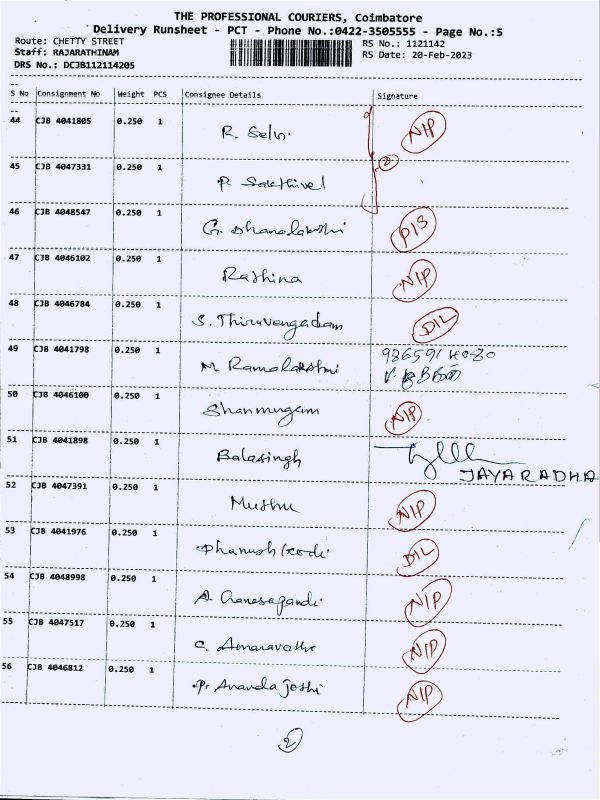 THE PROFESSIONAL COURIERS, Coimbatore
Delivery Runsheet - PCT - Phone No.:0422-3505555 - Page No.:5
Route: CHETTY STREET RS No.: 1121142
Staff: RAJARATHINAM RS Date: 20-Feb-2023
DRS No.: DCJB112114205
S No Consignment No Weight PCS Consignee Details Signature
44 CJB 4041805 0.250 1 R. Selvi NIP
2
45 CJB 4047331 0.250 1 P. Sakthivel
46 CJB 4048547 0.250 1 G. Dhanalakshmi PIS
47 CJB 4046102 0.250 1 Rathina NIP
48 CJB 4046784 0.250 1 S. Thiruvengadam DIL
49 CJB 4041798 0.250 1 M Ramalakshmi
50 CJB 4046100 0.250 1 Shanmugam NIP
51 CJB 4041898 0.250 1 Balasingh JAYARADHA
52 CJB 4047391 0.250 1 Muthu NIP
53 CJB 4041976 0.250 1 Dhanushkodi DIL
54 CJB 4048998 0.250 1 A. NIP
55 CJB 4047517 0.250 1 C. Amaravathi NIP
56 CJB 4046812 0.250 1 P. Ananda Joshi NIP
2